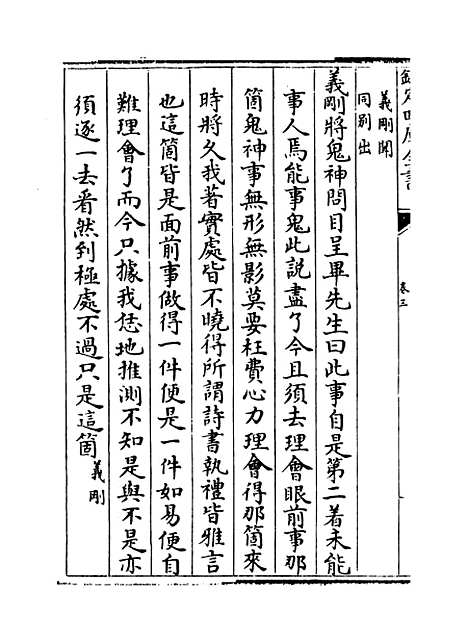 欽定四庫全書
卷三
義剛聞
同別出
義剛將鬼神問目呈畢先生曰此事自是第二着未能
事人焉能事鬼此說盡了今且須去理會眼前事那
箇鬼神事無形無影莫要枉費心力理會得那箇來
時將久我著實處皆不曉得所謂詩書執禮皆雅言
也這箇皆是面前事做得一件便是一件如易便自
難理會了而今只據我恁地推測不知是與不是亦
須逐一去看然到極處不過只是這箇義剛